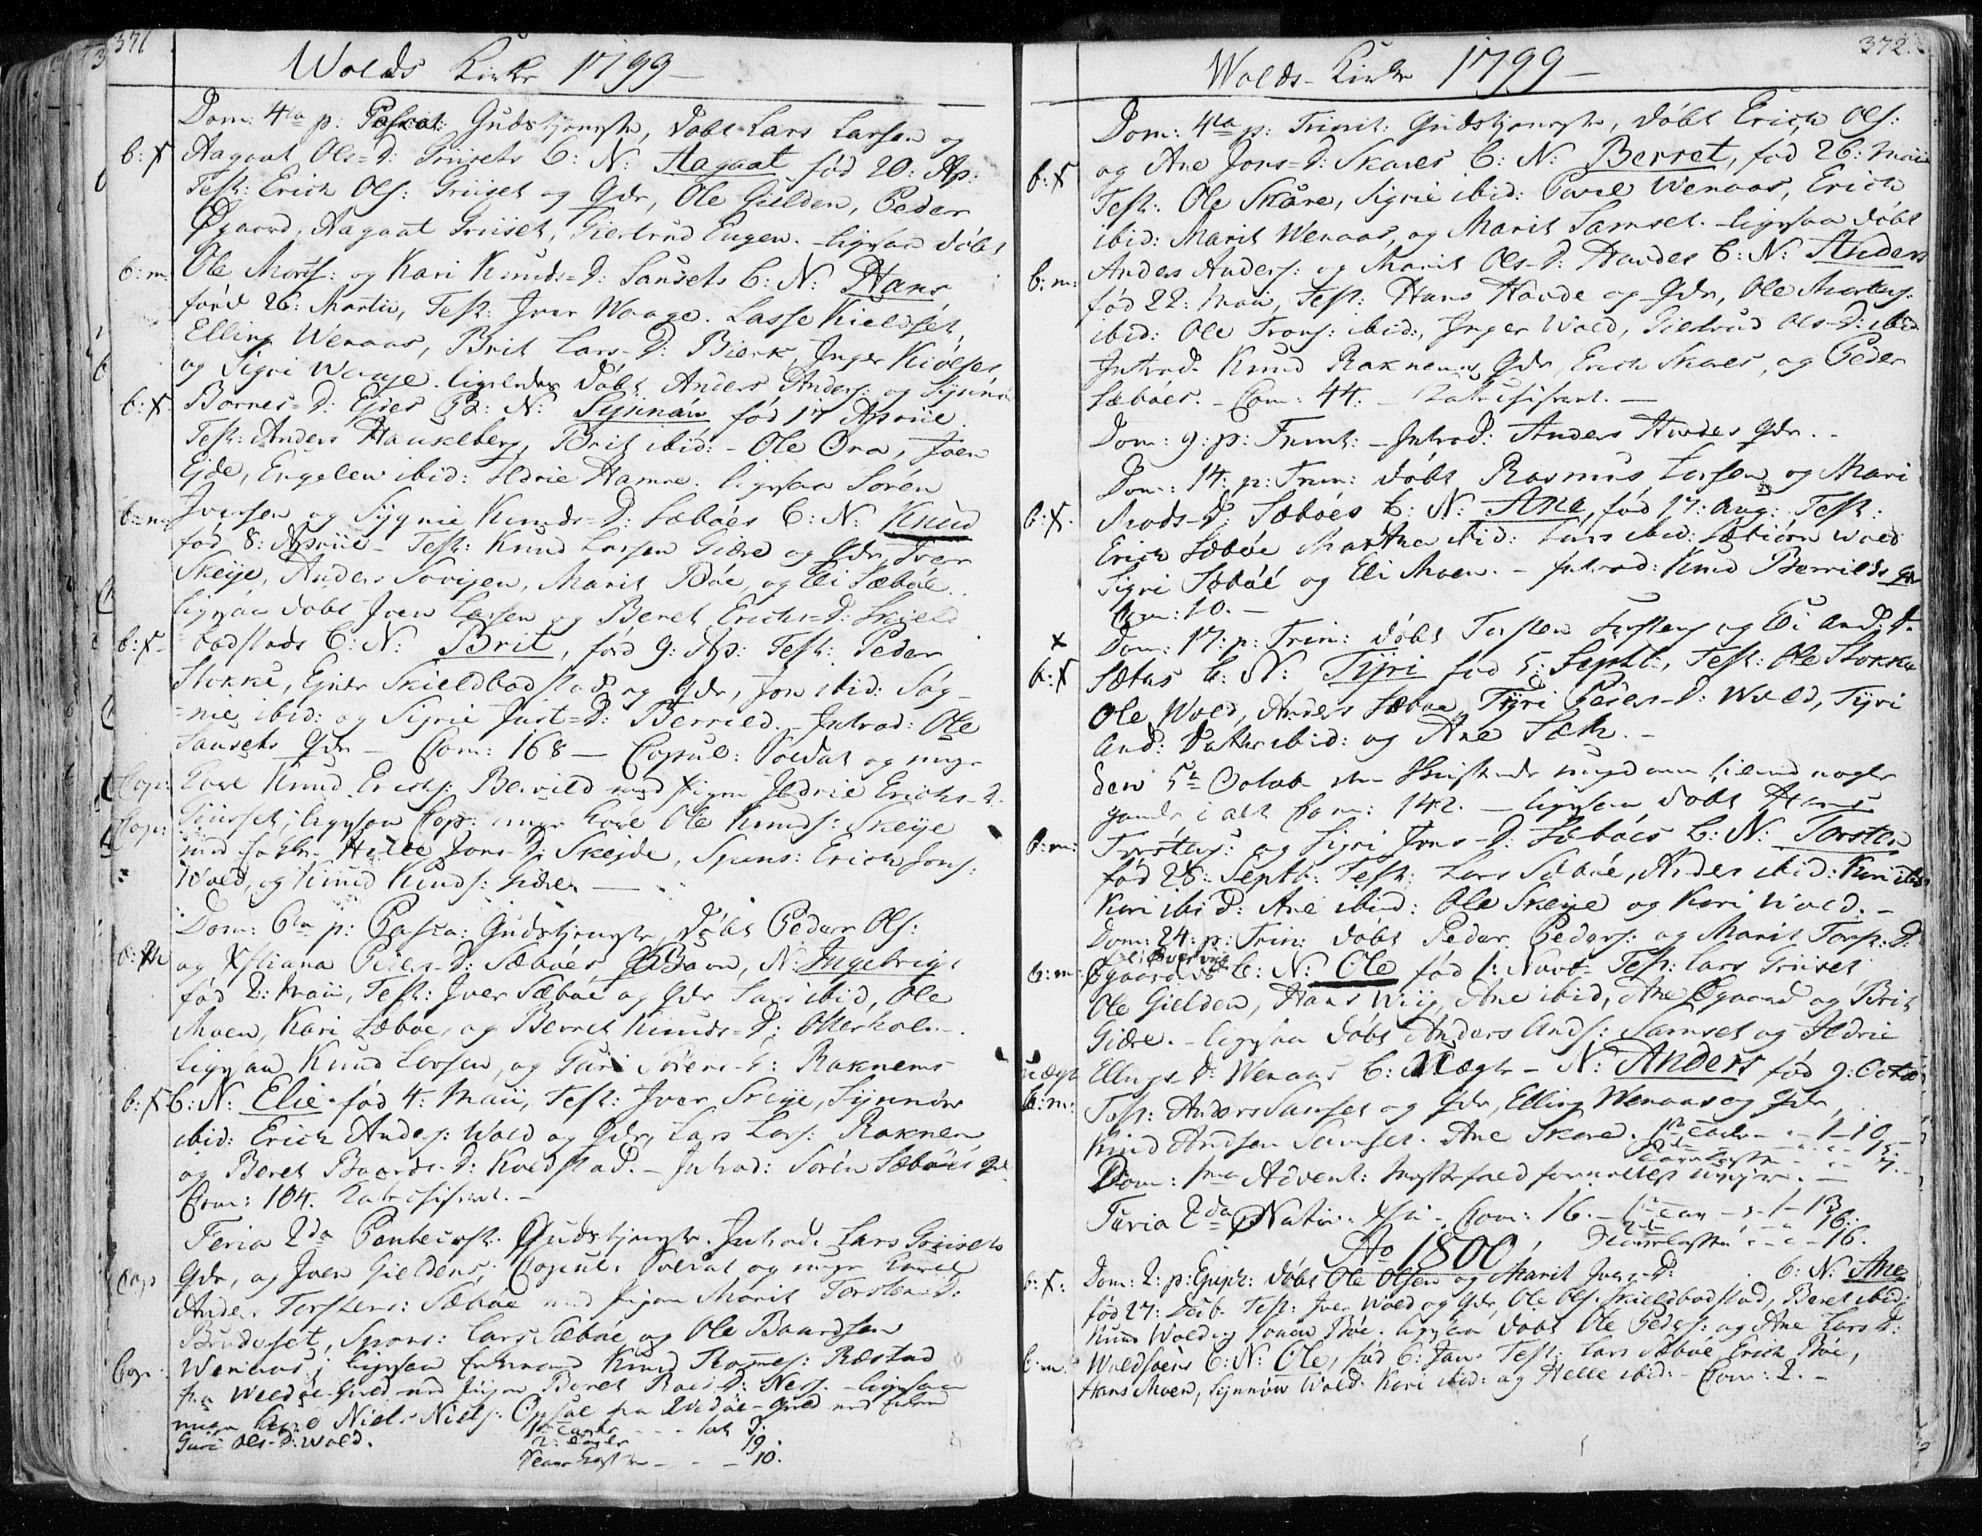 371
Wolds Kirke 1799 —
Dom: 4ta p: Pascat: Gudstjeneste, døbt Lars Larsen og
b: f Aagaat Ols=D: Griisets b: N: Aagaat fød 20: Ap:
Test: Erich Ols: Griiset og Qdr, Ole Gielden, Peder
Øgaard, Aagaat Griiset, Giertrud Eugen. ligesaa døbt
b: m: Ole Morts: og Kari Knuds=D: Sausets b: N: Hans
fød 26: Martii, Test: Jver Waage. Lasse Kieldset,
Elling Wenaas, Brit Lars=D: Bierk, Jnger Kiölses
og Sigri Waage. ligeledes døbt Anders Anders: og Synnöv
b: f. Bornes=D: Ejdes B: N: Synnöv fød 17 Apriie
Test: Anders Hauselberg, Brit ibid: - Ole Ora, Joen
Ejde, Engelew ibid: Ildrie Hamre. ligesaa Sören
b: m: Jversen og Sygnie Knuds=D: Sæböes b: N: Knud
fød 8: Apriie - Test: Knud Larsen Giære og Qdr, Jver
Skeije, Anders Sovigen, Marit Böe, og Eli Sæböe.
ligesaa døbt Jver Larsen og Beret Erichs=D: Skiel
b: f - =badstads b: N: Brit, fød 9: Ap: Test: Peder
Stokke, Ejner Skieldbadstad og Qdr, Jon ibid: Sög-
=nie ibid: og Sigrie Just=D: Berrild. Jntrod: Ole
Sausets Qdr — Com: 168 — Copul: Soldat og unge
Cop: Karl Knud Erichs: Berrild med Pigen Ildrie Erichs=D.
Cop: Griiset; ligesaa Cop: unge Karl Ole Knuds: Skeije
med Helle Jons=D: Skejde, Spons: Erich Jons:
Wold, og Knud Knuds: Giære —
Dom: 6ta p: Pasca: Gudstjeneste, døbt Peder Ols:
b: m og Xstiana Peders=D: Sæböes, B: Barn, N: Ingebrigt
fød 2: Maii, Test: Jver Sæböe og Qdr Lars ibid, Ole
Moen, Kari Sæböe, og Berret Knuds=D: Otterholm.
ligesaa Knud Larsen, og Guri Sörens=D: Raknems
b: f b: N: Elie fød 4: Maii, Test: Jver Skeije, Synnöv
ibid: Erich Anders: Wold og Qdr, Lars Lars: Raknem
og Beret Baards=D: Koldstad. - Jntrod: Sörén Sæböes Qd
Com: 104. Catechiseret. -
Feria 2da Pentecost: Gudstjeneste. Jntrod. Lars Griisets
Qdr, og Jver Gieldens; Copul: Soldat og unge Karl
Cop: Anders Torstens: Sæböe med Pigen Marit Torstens=D:
Brudeset, Spons: Lars Sæböe og Ole Baardsen
Cop: Wenaas; ligesaa Knud Rasmes: Ræstad
fra Weedöe-Gield med Pigen Beret Roes=D: Ness. ligesaa
unge Karl Niels Niels: Opsal fra Weöe-Gield med Pigen
Guri Ols=D: Wold.
1te Tavle - - - lod 3.
2: Tavle 19.
- - - 10.
372.
Wolds-Kirke 1799 —
Dom: 4ta p: Trinit: Gudstjeneste, døbt Erich Ols:
b: f og Ane Jons=D: Skares b: N: Berret, fød 26: Maii
Test: Ole Skåre, Sigrie ibid: Povel Wenaas, Erich
ibid: Marit Wenaas, og Marit Samset. - ligesaa døbt
b: m: Anders Anders: og Marit Ols=D: Hovdes b: N: Anders
fød 22: Maii, Test: Hans Hovde og Qdr, Ole Mortens:
ibid: Ole Trons: ibid:, Jnger Wold, Giertrud Ols=D: ibid
Jntrod. Knud Raknems Qdr, Erich Skares, og Peder
Sæböes. - Com: 44. - Catechiseret. —
Dom: 9: p: Trinit: - Jntrod: Anders Hovdes Qdr. -
Dom: 14: p: Trin: døbt Rasmus Larsen og Mari
b: f. Mads=D: Sæböes b: N: Ane, fød 17: Aug: Test:
Erich Sæböe Martha ibid: Lars ibid: Sæbiörn Wold
Sigri Sæböe og Eli Moen. - Jntrod: Knud Berrilds Qdr
Com: 10. —
x Dom: 17: p: Trin: døbt Torsten Torstens og Eli And: D.
b: f Sætus b: N: Tyri fød 5: Septb:, Test: Ole Stokke
Ole Wold, Anders Sæböe, Tyri Peders=D: Wold, Tyri
And: Datter ibid: og Ane Sæth. —
den 5te Octob. nogle
gamle i alt Com: 142. — ligesaa døbt Hans
b: m: Torstens: og Sigri Jons=D: Sæböes b: N: Torsten
fød 28: Septb: Test: Lars Sæböe, Anders ibid: Kari ibid
Kari ibid: Ane ibid: Ole Skeije og Kari Wold. -
Dom: 24: p: Trin: døbt Peder Peders: og Marit Tors: D:
b: m: Øgaard b: N: Ole fød 1: Novb- Test: Lars Griiset
Ole Gielden, Hans Wiig, Ane ibid, Ane Øgaard og Brit
Giære. - ligesaa døbt Anders Ands: Samset og Ildrie
uægte Ellings D: Wenaas b: Uægte - N: Anders fød 9: Octob
b: m: Test: Anders Samset og Qdr, Elling Wenaas og Qdr,
Knud Andsen Samset. Ane Skare. 1te Tavle - - 1-19
- - 15.
- - 7.
Dom: 1ma Advent: Messefald formedelst Uveijr. —
Feria 2da Nativ: Xsti - Com: 16. - 1te Tav - - 1-13.
2de - - 16.
- - 16.
Ao 1800
b: f. Dom: 2: p: Epiph: døbt Ole Olsen og Marit Jvers=D: b: N: Ane
fød 27: Decb. Test: Jver Wold og Qdr, Ole Ols: Skieldbadstad, Beret ibid:
Knud Wold og Böe. ligesaa døbt Ole Peders: og Ane Lars D:
b: m: Woldsæters b: N: Ole, fød 6: Jan: Test: Lars Sæböe, Erich Böe,
Hans Moen, Synnöv Wold. Kari ibid: og Helle ibid: - Com: 2. -